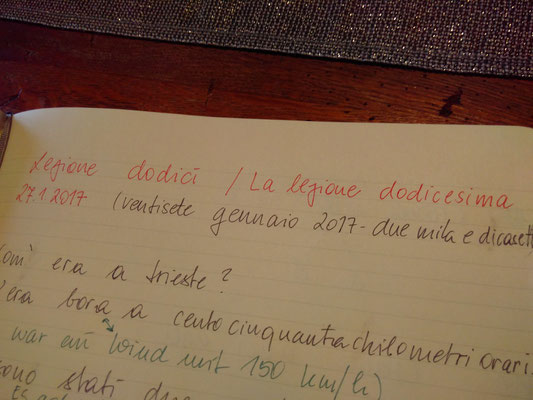 Lezione dodici / La lezione dodicesima
27.1.2017 (ventisete gennaio 2017 - due mila e dicasett
Com' era a trieste?
era bora a cento cinquanta chilometri orari.
war ein Wind mit 150 km/h)
sono stati due